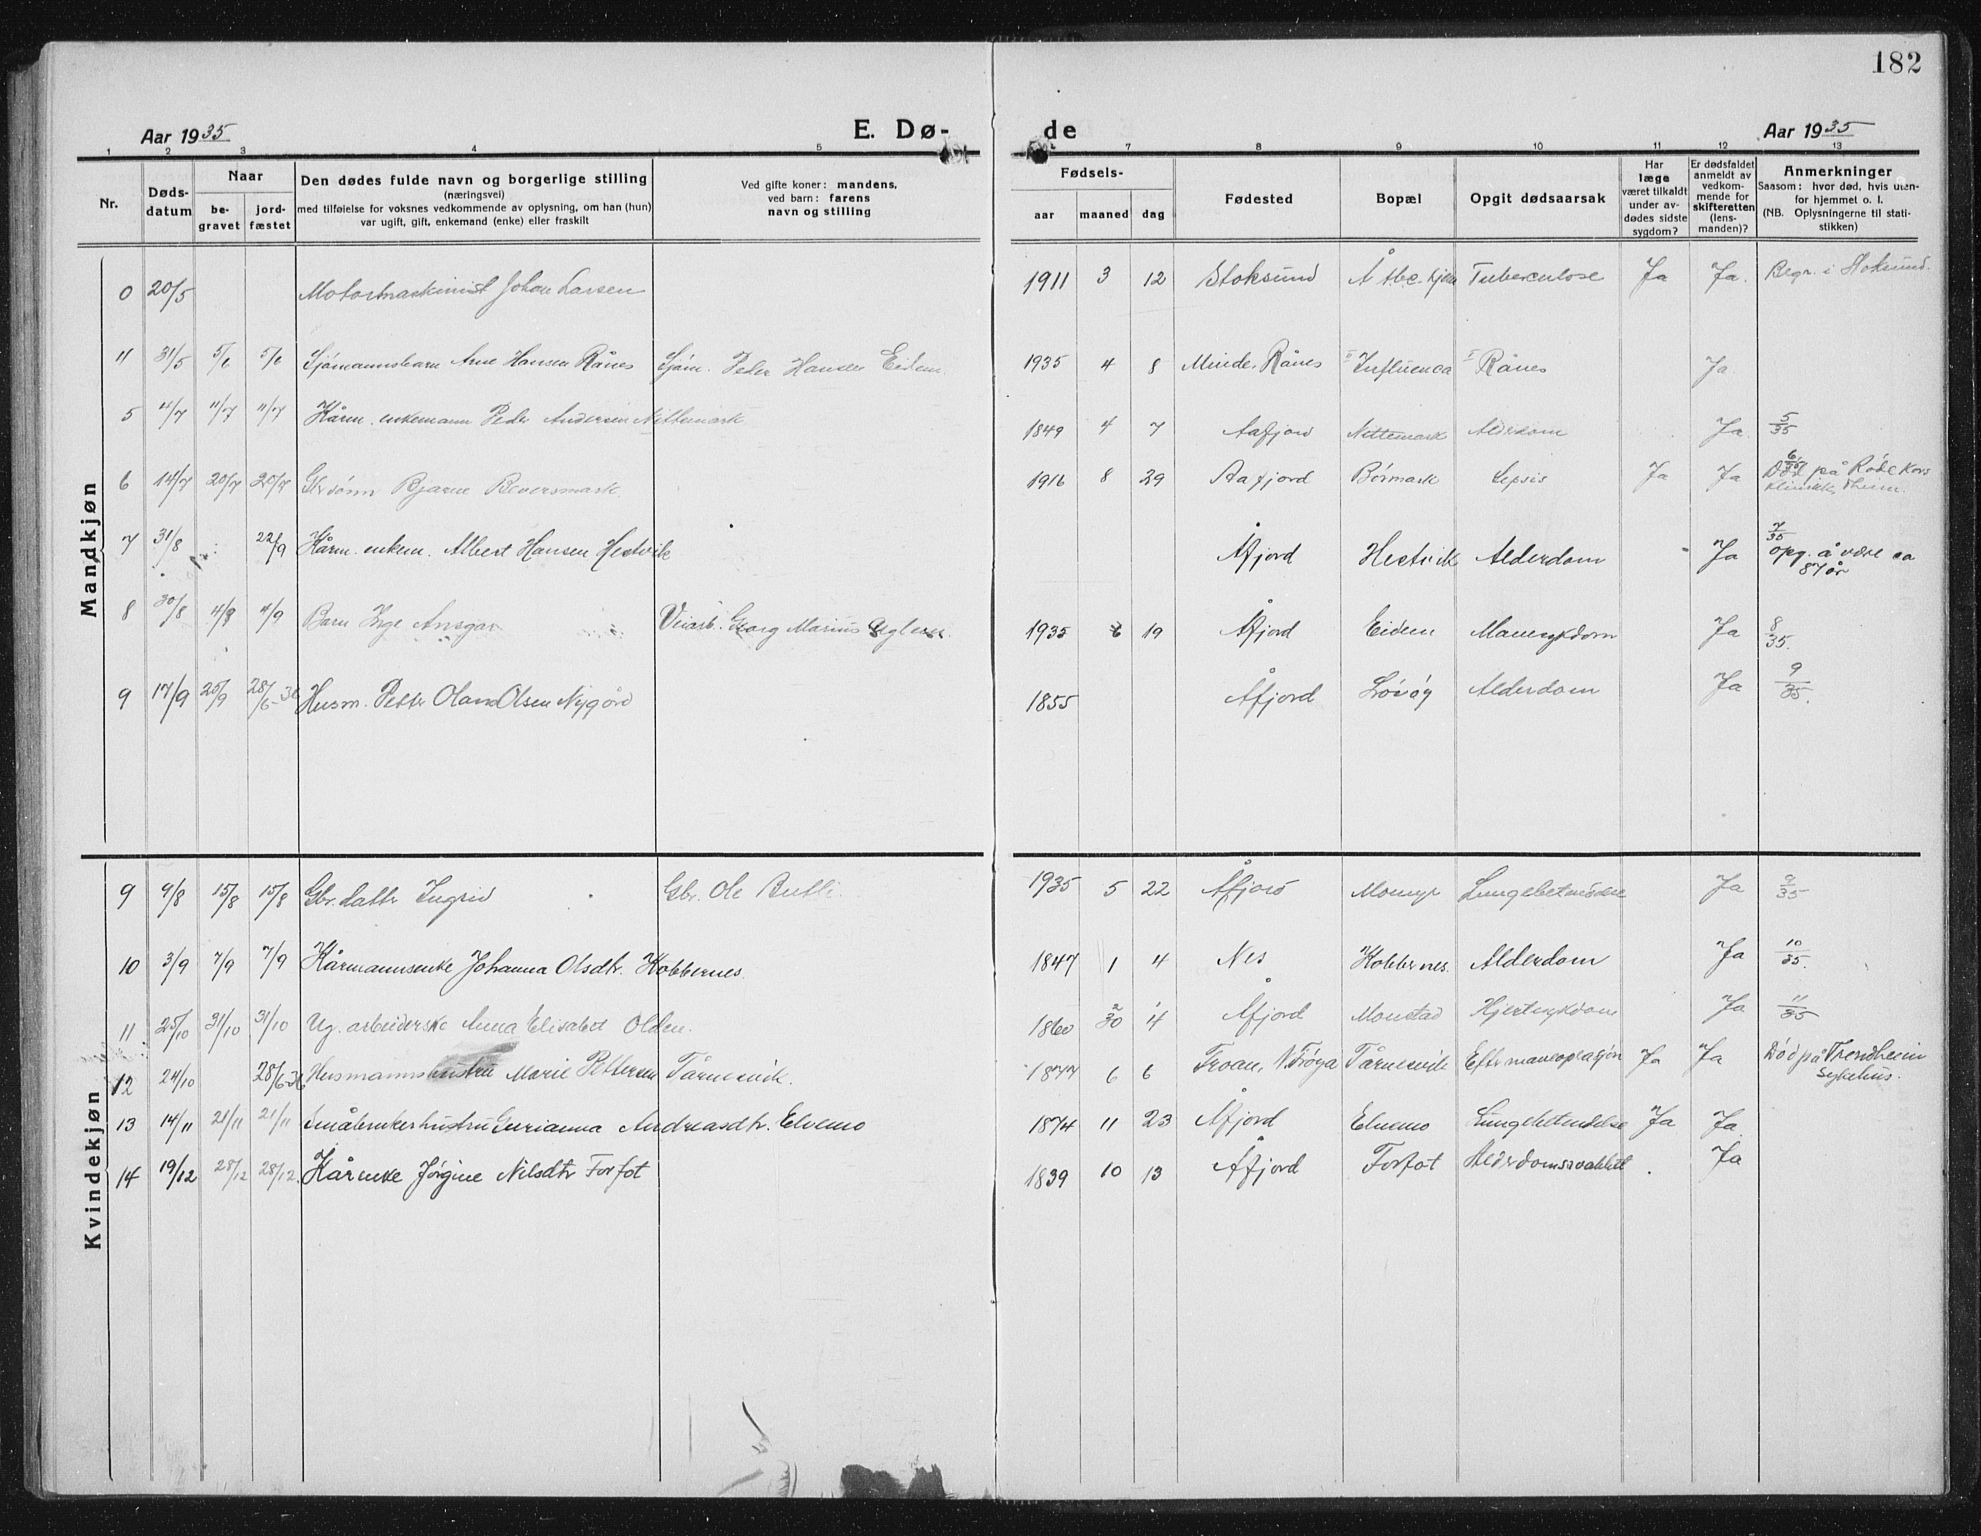 182
Aar 1935 E. Dø- de Aar 1935
1 2 3 4 5 7 8 9 10 11 12 13
Nr. Døds-datum Naar be-gravet jord-fæstet Den dødes fulde navn og borgerlige stilling (næringsvei) med tilføielse for voksnes vedkommende av oplysning, om han (hun) var ugift, gift, enkemand (enke) eller fraskilt Ved gifte koner: mandens, ved barn: farens navn og stilling Fødsels- aar maaned dag Fødested Bopæl Opgit dødsaarsak Har læge været tilkaldt under av-dødes sidste sygdom? Er dødsfaldet anmeldt av vedkom-mende for skifteretten (lens-manden)? Anmerkninger Saasom: hvor død, hvis uten-for hjemmet o. l. (NB. Oplysningerne til stati-stikken)
Mandkjøn
0 20/5 Motormaskinist Johan Larsen 1911 3 12 Stoksund Å Tuberculose Ja Ja. Begr. i
11 31/5 5/6 5/6 Sjømannsbarn Arne Hansen Rånes Sjøm. Peder Hansen Eidem. 1935 4 8 Rånes II Influenca I Rånes Ja
5 4/7 11/7 11/7 Kårm. enkemann Peder Andersen Nittemark 1849 4 7 Aafjord Nittemark Alderdom Ja. 5/35
6 14/7 20/7 20/7 Gbr.sønn Bjarne Beversmark 1916 8 29 Aafjord Børmark Sepsis Ja Ja 6/35 Død på Røde Kors klinikk, Theim.
7 31/8 22/9 Kårm. enkem. Albert Hansen Hestvik Åfjord Hestvik Alderdom Ja 7/35 opg. å være ca 87 år
8 30/8 4/8 4/9 Barn Inge Ansgar Veiarb. Georg Marius 1935 6 19 Åfjord Eidem Ja 8/35.
9 17/9 25/9 28/6-36 Husm. Petter Olaus Olsen Nygård 1855 Åfjord Løvøy Alderdom Ja 9/35.
Kvindekjøn
9 9/8 15/8 15/8 Gbr. datter Ingrid Gbr. Ole Butli. 1935 5 22 Åfjord Momyr Lungebetendelse Ja 9/35
10 3/9 7/9 7/9 Kårmannsenke Johanna Olsdtr. Kobbernes. 1847 1 4 Nes Kobbernes. Alderdom Ja 10/35.
11 25/10 31/10 31/10 Ug. arbeiderske Anna Elisabet Olden. 1860 30 4 Åfjord Monstad Hjertesykdom Ja 11/35
12 24/10 28/6-36 Husmannshustru Marie Pettersen Tårnesvik. 1877 6 6 Froan, N. Frøya Tårnesvik Efter maveoperasjon Ja Ja Død på Trondheim sykehus.
13 14/11 21/11 21/11 Småbrukerhustru Gurianna Andreasdtr. Elvemo 1874 11 23 Åfjord Elvemo Lungebetendelse Ja Ja
14 19/12 28/12 28/12. Kårenke Jørgine Nilsdtr Forfot 1839 10 13 Åfjord Forfot Ja